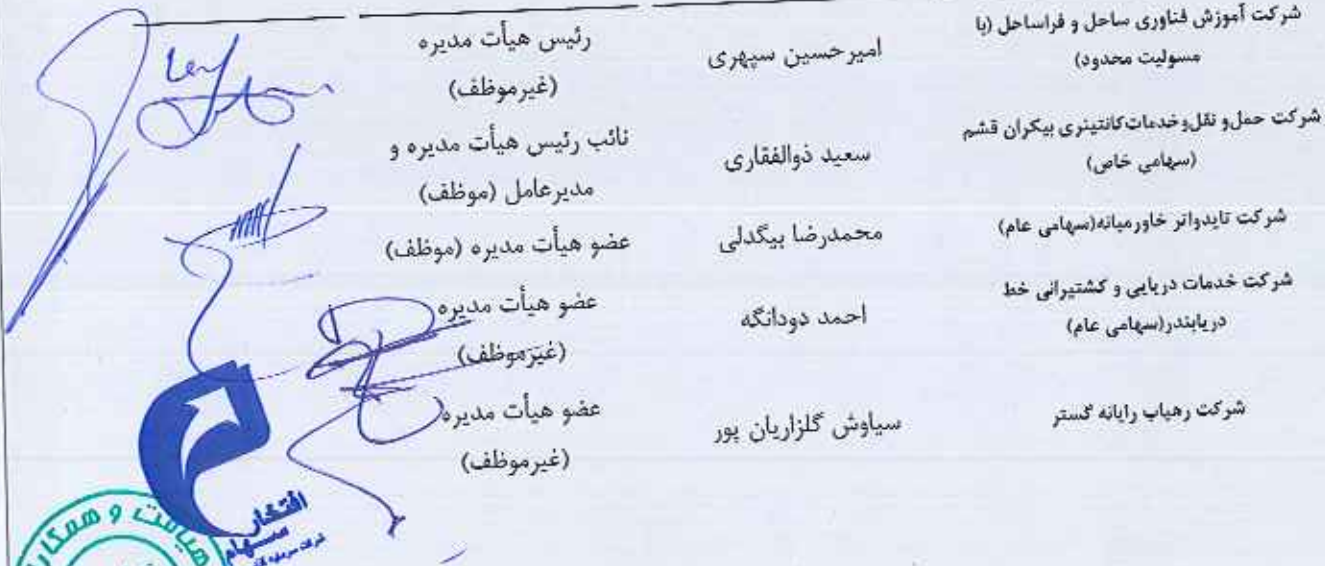 شرکت آموزش فناوری ساحل و فراساحل (با
مسولیت محدود)
امیرحسین سپهری
رئیس هیأت مدیره
(غیرموظف)
شرکت حمل و نقل و خدمات کانتینری بیکران قشم
(سهامی خاص)
سعید ذوالفقاری
نائب رئیس هیأت مدیره و
مدیرعامل (موظف)
شرکت تایدواتر خاورمیانه(سهامی عام)
محمدرضا بیگدلی
عضو هیأت مدیره (موظف)
شرکت خدمات دریایی و کشتیرانی خط
دریابندر(سهامی عام)
احمد دودانگه
عضو هیأت مدیره
(غیرموظف)
شرکت رهیاب رایانه گستر
سیاوش گلزاریان پور
عضو هیأت مدیره
(غیرموظف)
افتخار
سهام